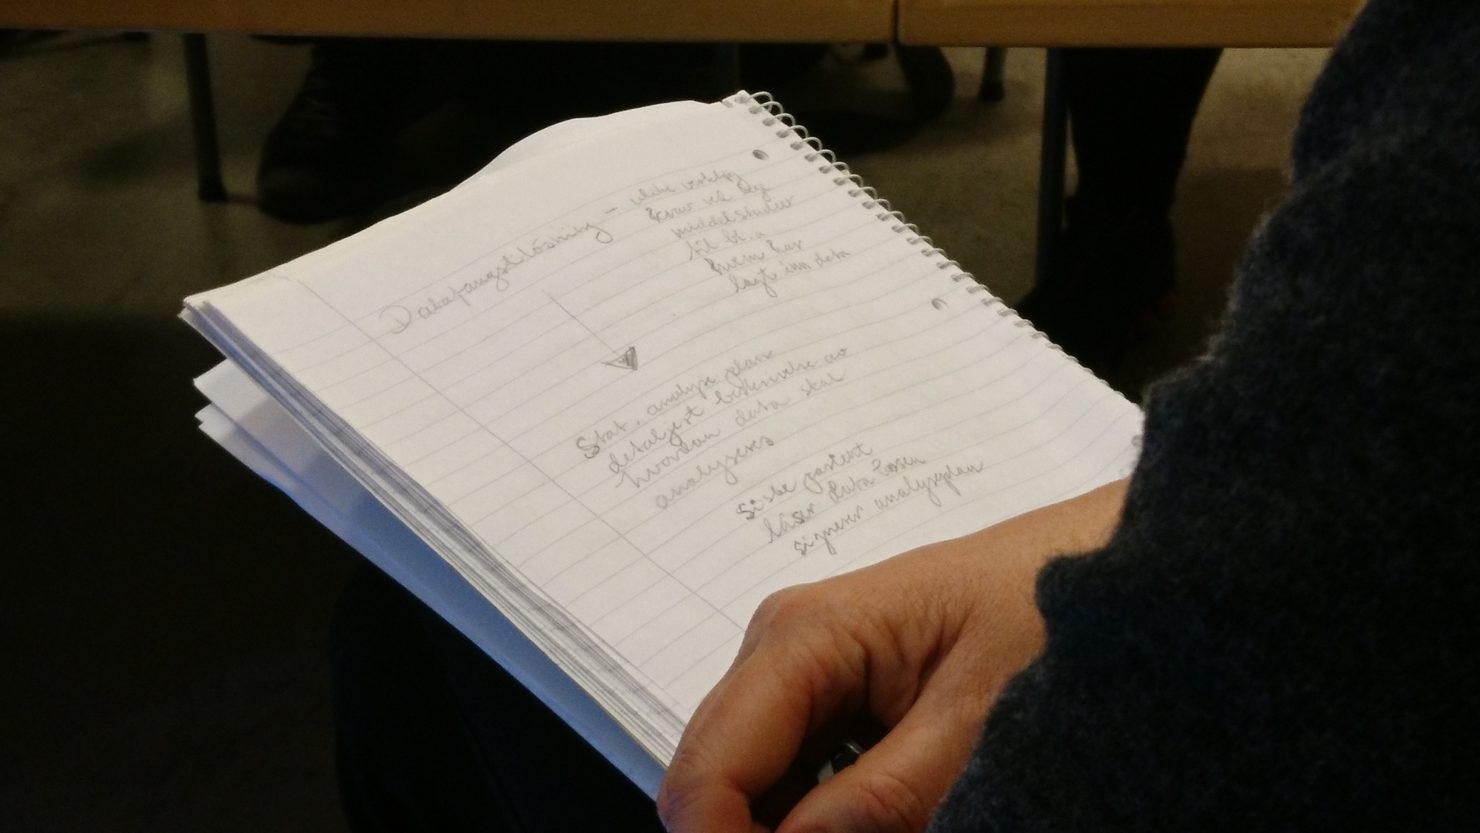 Datafangstløsning –
krav ved leg
middelstudier
til bl.a
hvem har
lagt inn data
Stat. analyse plan
detaljert beskrivelse av
hvordan data skal
analyseres
Siste pasient
låser data basen
signerer analyseplan